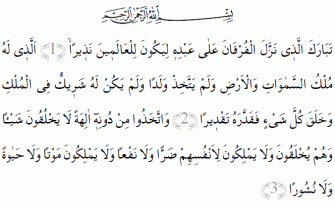 بِسْمِ اللهِ الرَّحْمٰنِ الرَّحِيمِ
تَبَارَكَ الَّذِى نَزَّلَ الْفُرْقَانَ عَلٰى عَبْدِهِ لِيَكُونَ لِلْعَالَمِينَ نَذِيرًا ﴿1﴾ الَّذِى لَهُ
مُلْكُ السَّمٰوَاتِ وَالْاَرْضِ وَلَمْ يَتَّخِذْ وَلَدًا وَلَمْ يَكُنْ لَهُ شَرِيكٌ فِى الْمُلْكِ
وَخَلَقَ كُلَّ شَىْءٍ فَقَدَّرَهُ تَقْدِيرًا ﴿2﴾ وَاتَّخَذُوا مِنْ دُونِهِ اٰلِهَةً لَا يَخْلُقُونَ شَيْئًا
وَهُمْ يُخْلَقُونَ وَلَا يَمْلِكُونَ لِاَنْفُسِهِمْ ضَرًّا وَلَا نَفْعًا وَلَا يَمْلِكُونَ مَوْتًا وَلَا حَيٰوةً
وَلَا نُشُورًا ﴿3﴾